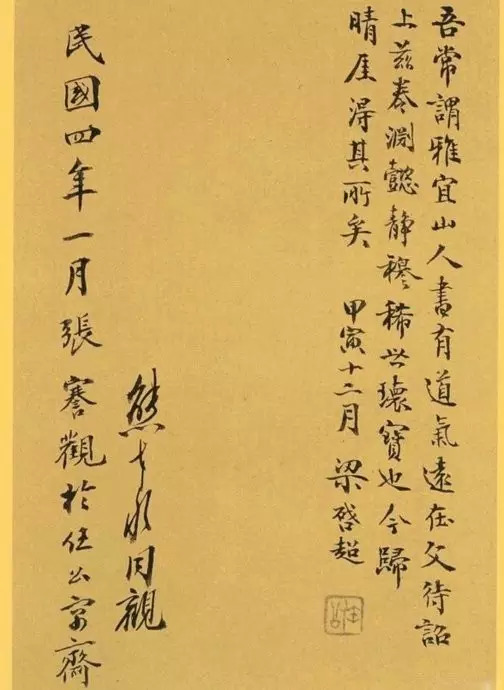 吾常謂雅宜山人書有道氣遠在文待詔
上茲卷淵懿靜穆稀世瓌寶也今歸
晴厓得其所矣 甲寅十二月 梁啓超
熊同觀
民國四年一月張謇觀於任公寓齋